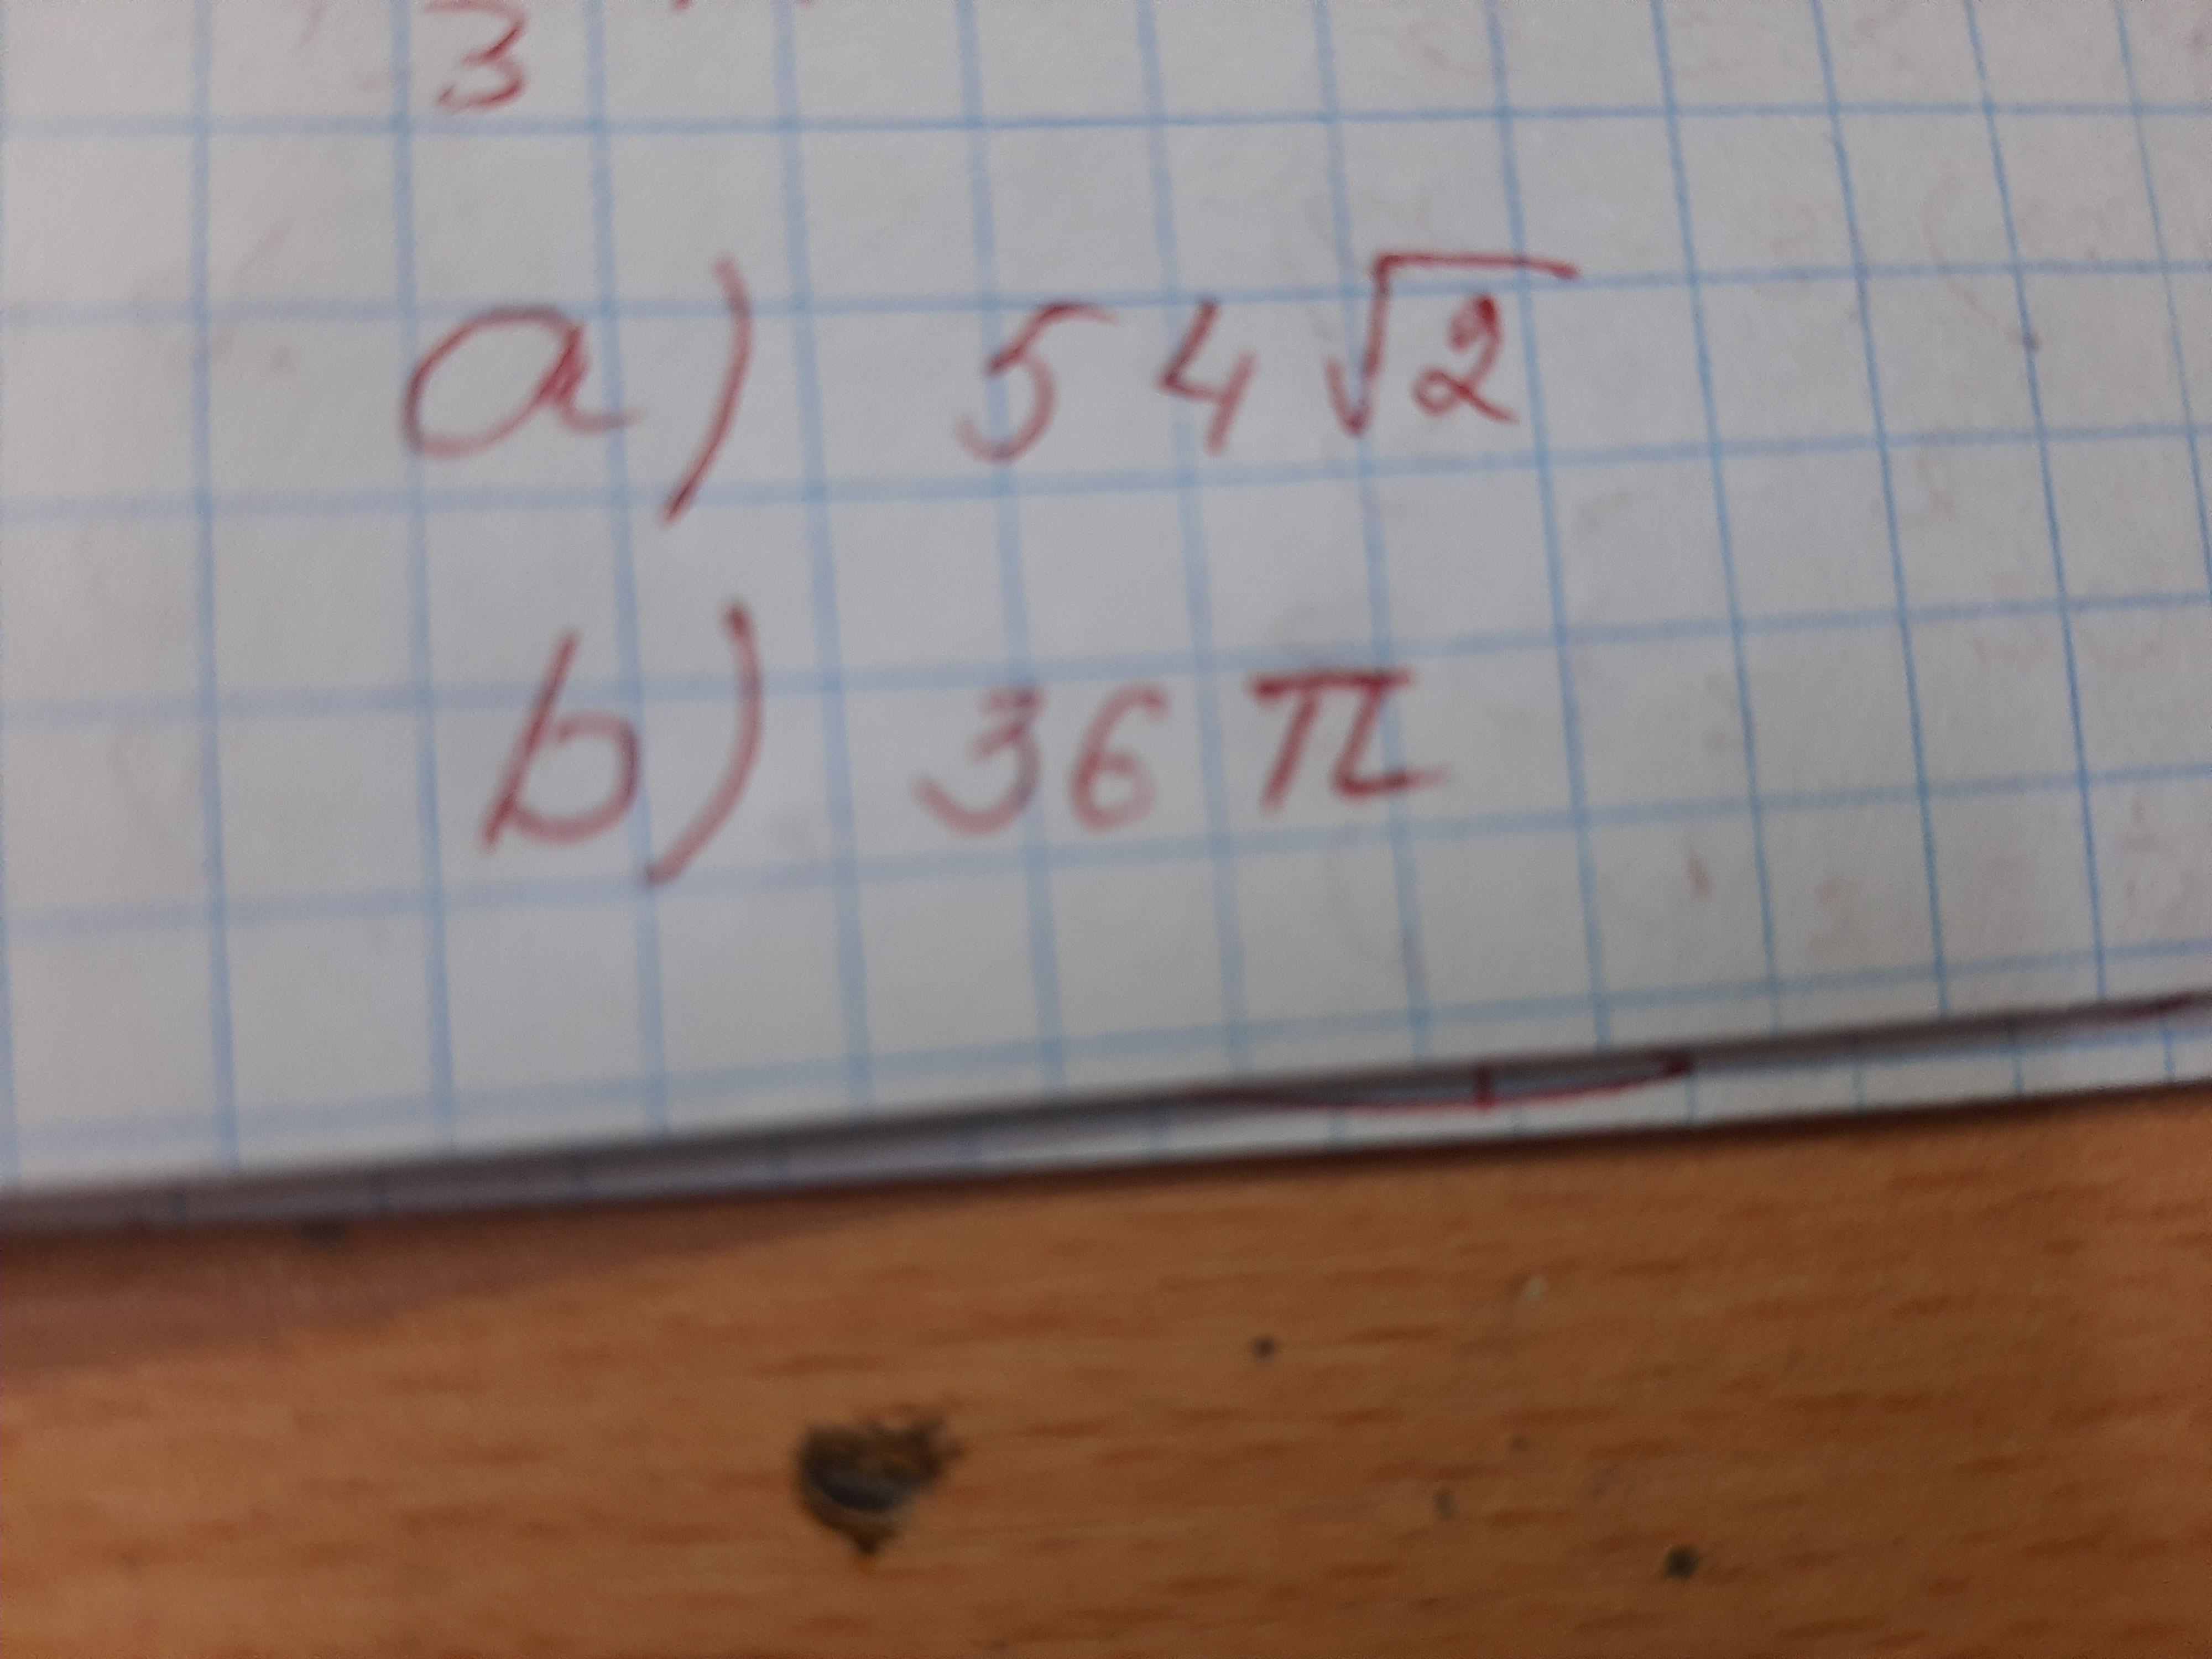 3
a) 54√2
b) 36π